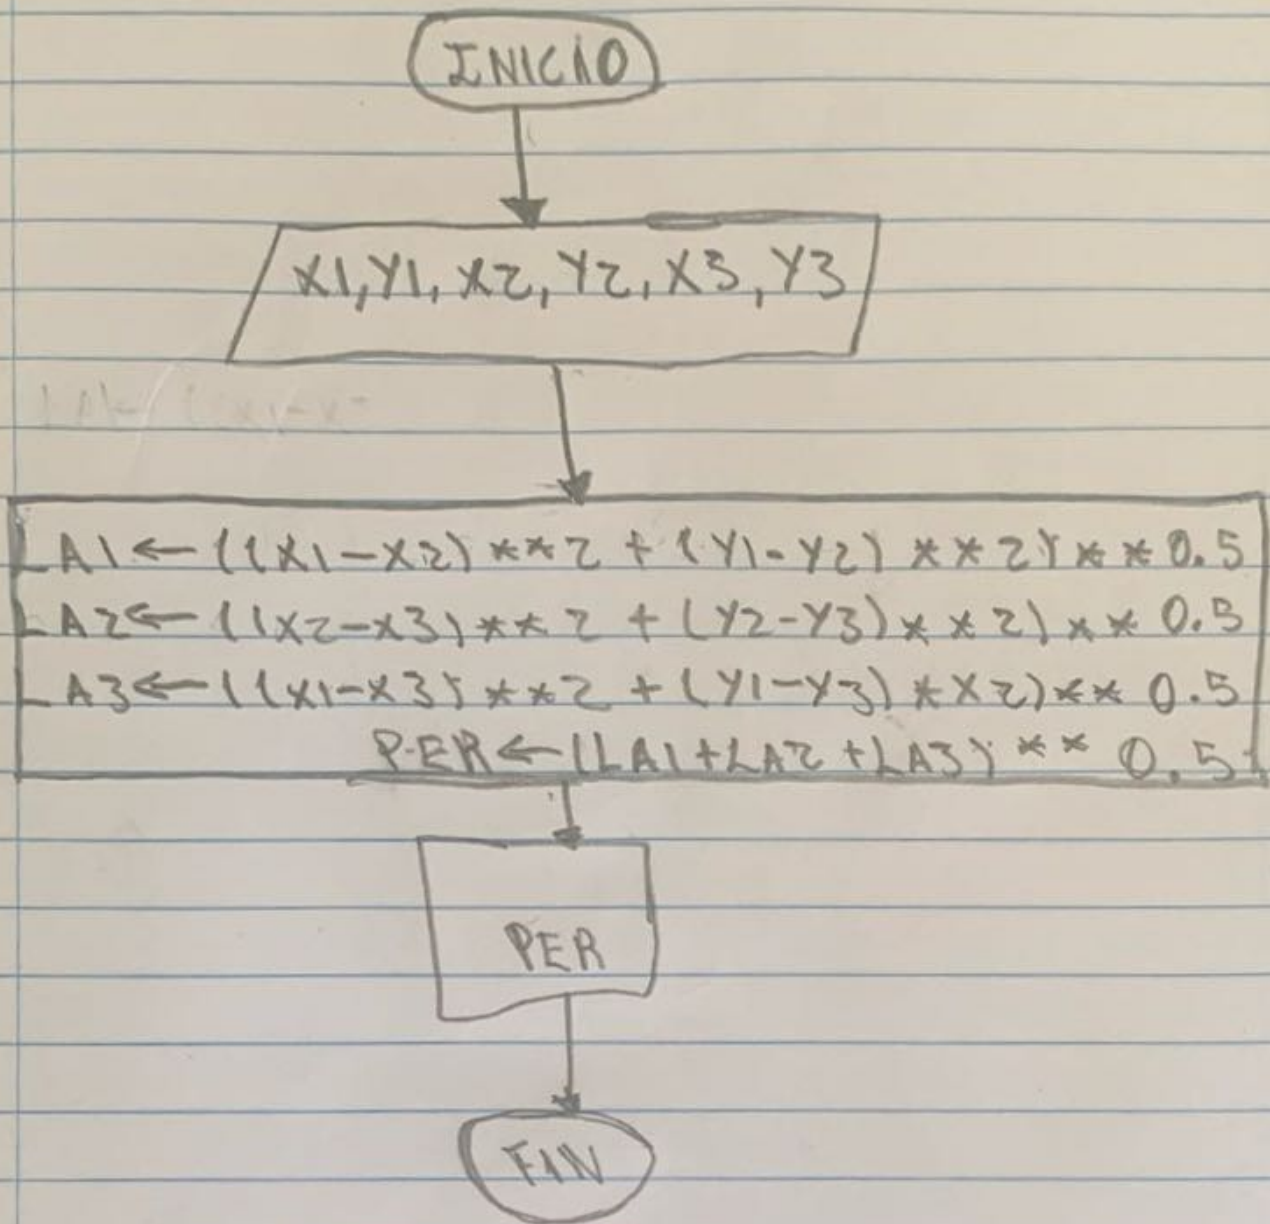 INICIO
X1,Y1,X2,Y2,X3,Y3
LA1←((X1-X2)**2+(Y1-Y2)**2)**0.5
LA2←((X2-X3)**2+(Y2-Y3)**2)**0.5
LA3←((X1-X3)**2+(Y1-Y3)**2)**0.5
PER←(LA1+LA2+LA3)**0.5
PER
FIN